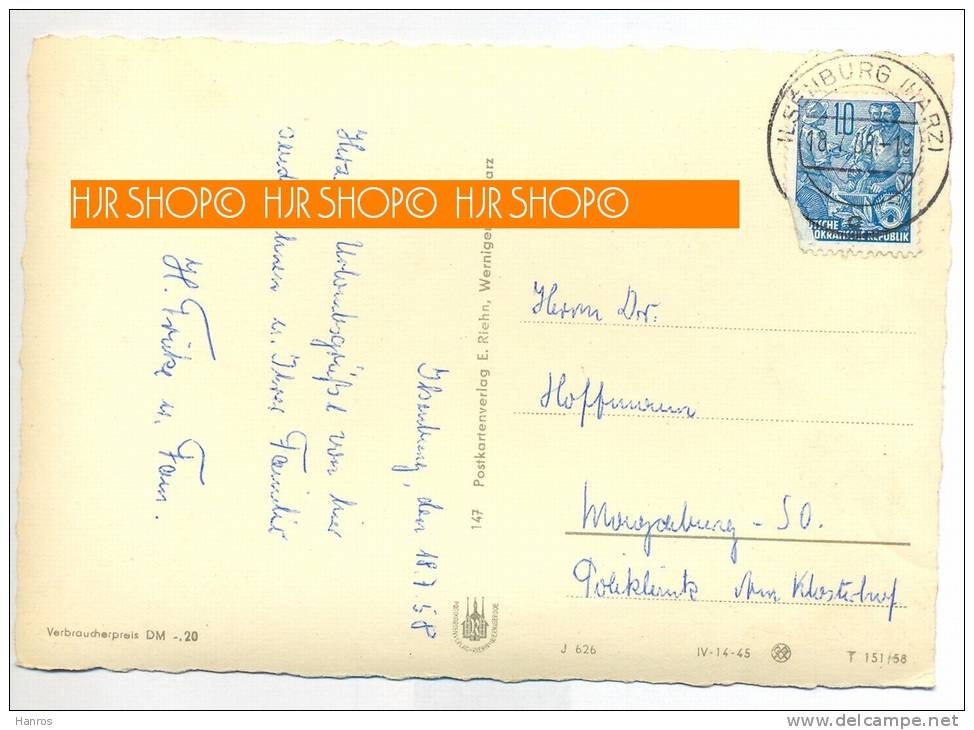 Ilsenburg, den 18.7.58
Urlaubsgrüße von hier
u. Ihrer Familie
H. Fricke u. Fam.
Herrn Dr.
Hoffmann
Magdeburg - SO.
Poliklinik Am Klosterhof
ILSENBURG (HARZ)
10
OKRATISCHE REPUBLIK
HJR SHOP© HJR SHOP© HJR SHOP©
147 Postkartenverlag E. Riehn, Wernigerode/Harz
Verbraucherpreis DM -,20
J 626
IV-14-45
T 151/58
Hanros
www.delcampe.net